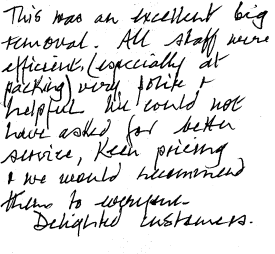 This was an excellent big
removal. All staff were
efficient, (especially at
packing) very polite +
helpful. We could not
have asked for better
service, Keen pricing
& we would recommend
them to everyone.
Delighted customers.